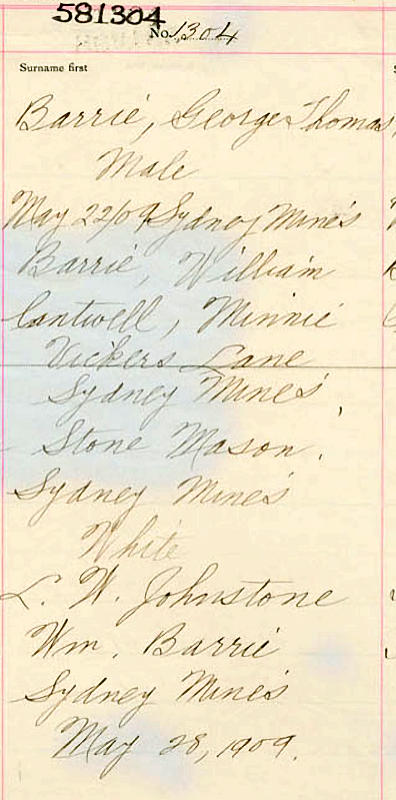 581304
No. 1304
Surname first
Barrie, George Thomas
Male
May 22/09 Sydney Mines
Barrie, William
Cantwell, Minnie
Vickers Lane
Sydney Mines,
Stone Mason.
Sydney Mines
White
L. W. Johnstone
Wm. Barrie
Sydney Mines
May 28, 1909.